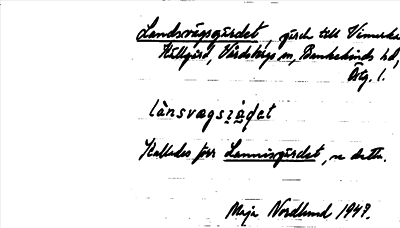 Landsvägsgärdet, gärde till Vimarka
Källgård, Vårdsbergs sn, Bankekinds hd,
Östg. l.
lànsvægsjä̀ḍet
Kallades förr Lannisgärdet, se detta.
Maja Nordlund 1947.